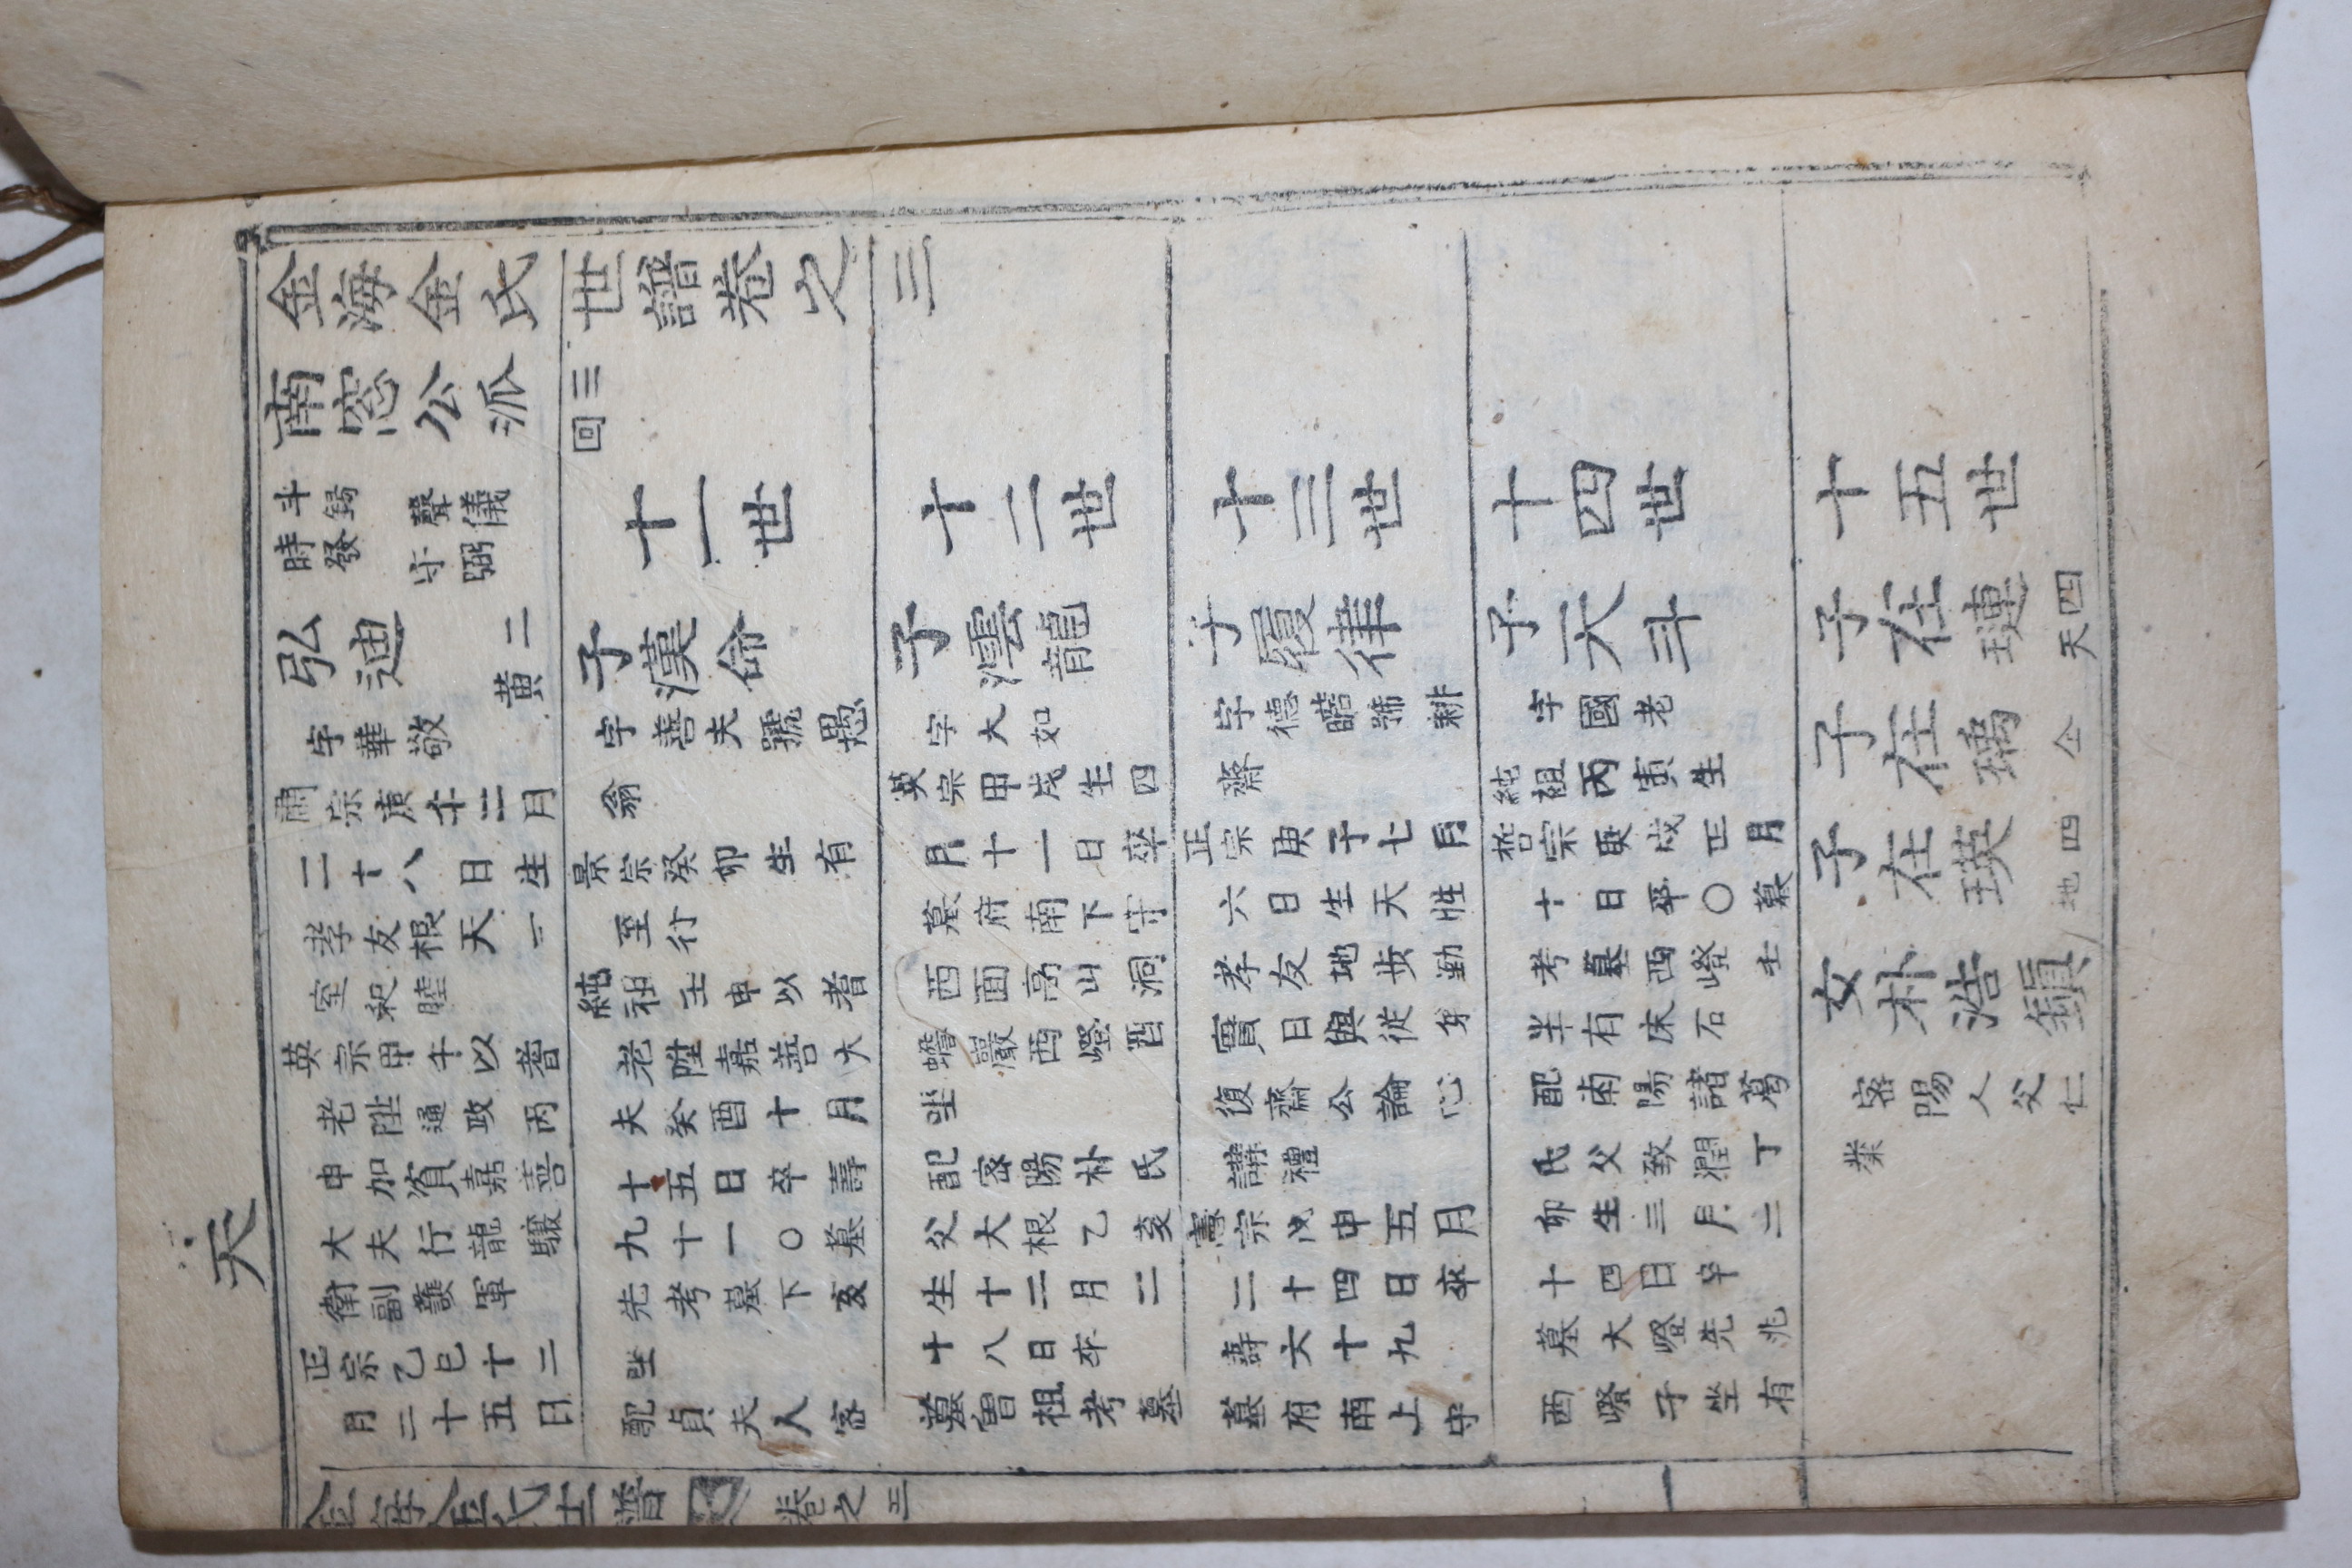 金海金氏世譜卷之三
南窓公派
斗錫 聲儀
時發 守弼
弘迪 黃二
字華敬
肅宗庚午三月
二十八日生
孝友根天一
室和睦
英宗甲午以耆
老陞通政丙
申加資嘉善
大夫行龍驤
衛副護軍
正宗乙巳十二
月二十五日
回三
十一世
子漢命
字善夫號愚
翁
景宗癸卯生有
至行
純祖壬申以耆
老陞嘉善大
夫癸酉十月
十五日卒壽
九十一〇墓
先考墓下亥
坐
配貞夫人密
十二世
子澐龍
字大如
英宗甲戌生四
月十一日卒
墓府南下守
西面高山洞
蟾巖西嶝酉
坐
配密陽朴氏
父大根乙亥
生十二月二
十八日卒
墓曾祖考墓
十三世
子履律
字德皓號耕
齋
正宗庚子七月
六日生天性
孝友地步勤
實日與從弟
復齋公論心
講禮
憲宗戊申五月
二十四日卒
壽六十九
墓府南上守
十四世
子天斗
字國老
純祖丙寅生
哲宗庚戌正月
十日卒〇墓
考墓西嶝壬
坐有床石
配南陽諸葛
氏父致潤丁
卯生三月二
十四日卒
墓大嶝先兆
西嶝子坐有
十五世
子在璉 天四
子在璃 仝
子在瑛 地四
女朴浩鎭
密陽人父仁
業
金海金氏世譜 卷之三
天